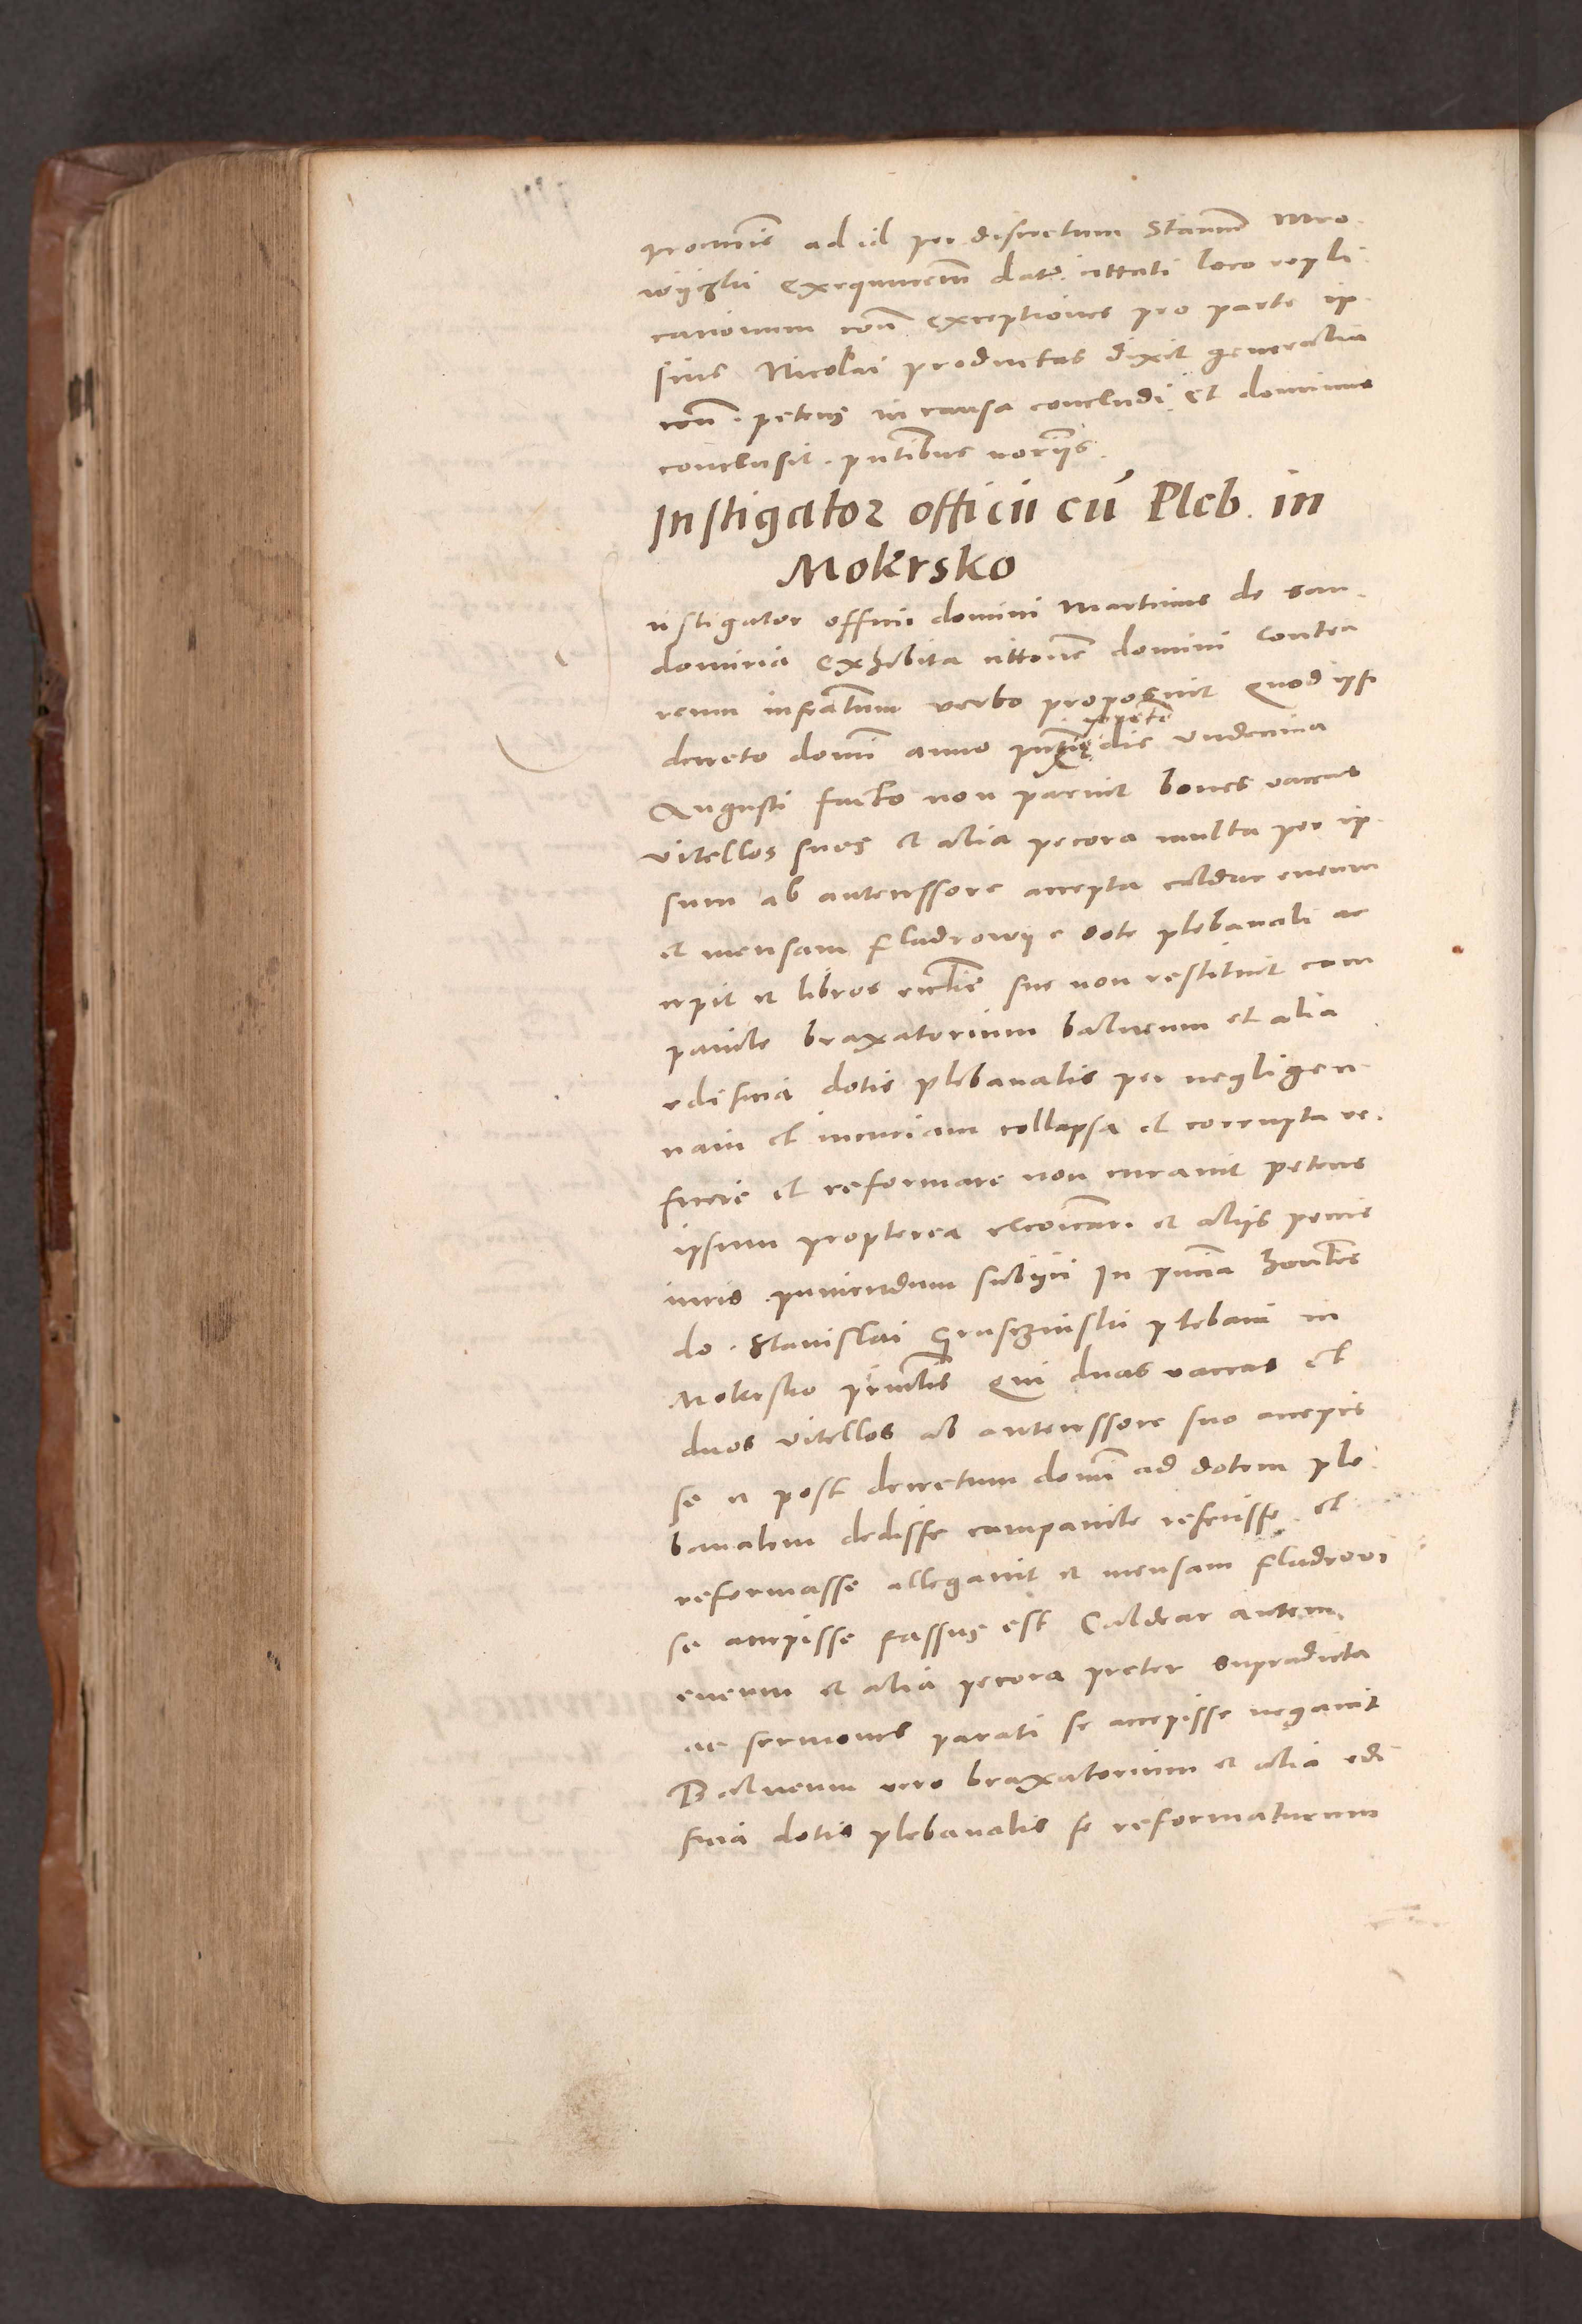 ad id per discretum Stanm̄ Mro
wijczki exequutem̄ datu. cittati loco repli
cationum con̄ exceptiones pro parte ip
sius Nicolai productas dixit generalia
con̄. petens in causa concludi. Et dominus
conclusit. pn̄tibus norijs.
Instigator officii cū Pleb. in
Mokrsko
nstigator officii domini Martinus de San
domiria exhibita cittōne domini Contra
reum infrāctum verbo proposuit Quod ipse
decreto domī anno pn̄ti die undecima
Augusti facto non paruit boues vaccas
vitellos sues et alia pecora multa per ip
sum ab antecessore accepta caldar eneum
et mensam fladrowy e dote plebanali ac
cepit et libros ecclīe sue non restituit cam
panile braxatorium balneum et alia
edificia dotis plebanalis per negligen
ciam et incuriam collapsa et corrupta re
ficere et reformare non curauit petens
ipsum propterea excōicari et alijs penis
iuris puniendum subijci In pn̄cia honēstis
do. Stanislai Gruszczinski plebani in
Mokrsko prīncplis Qui duas vaccas et
duos vitellos ab antecessore suo accepis
se et post decretum domī ad dotem ple
banalem dedisse campanile refecisse et
reformasse allegauit et mensam fladrowi
se accepisse fassus est Caldear autem
eneum et alia pecora preter supradicta
ac sermones parati se accepisse negauit
Balneum vero braxatorium et alia edi
ficia dotis plebanalis se reformaturum